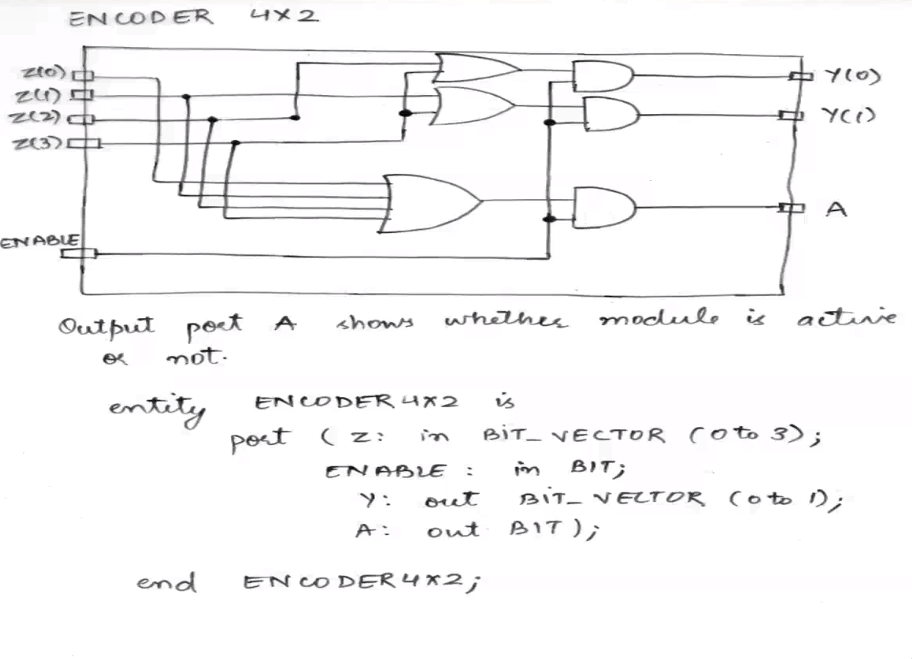 ENCODER 4X2
Z(0)
Z(1)
Z(2)
Z(3)
ENABLE
Y(0)
Y(1)
A
Output port A shows whether module is active
or not.
entity ENCODER4X2 is
port ( Z: in BIT_VECTOR (0 to 3);
ENABLE : in BIT;
Y: out BIT_VECTOR (0 to 1);
A: out BIT);
end ENCODER4X2;